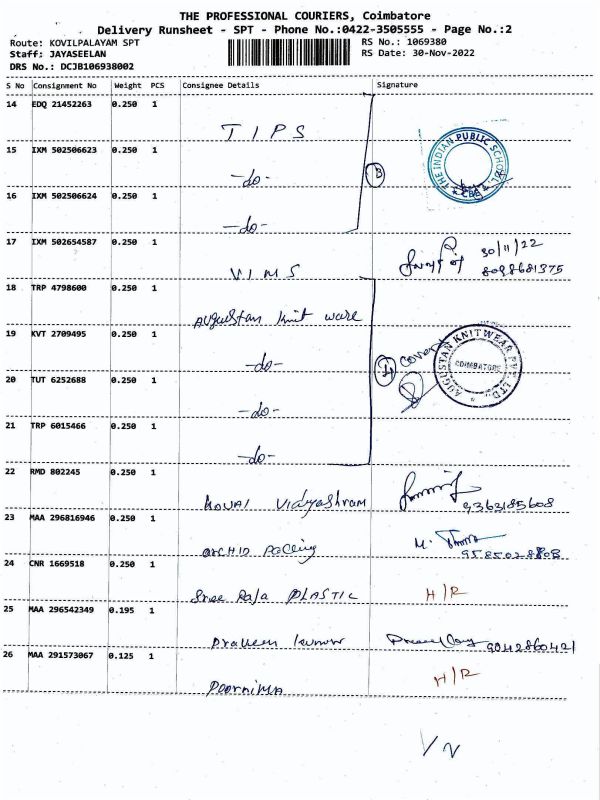 THE PROFESSIONAL COURIERS, Coimbatore
Delivery Runsheet - SPT - Phone No.:0422-3505555 - Page No.:2
Route: KOVILPALAYAM SPT
Staff: JAYASEELAN
DRS No.: DCJB106938002
RS No.: 1069380
RS Date: 30-Nov-2022
S No Consignment No Weight PCS Consignee Details Signature
14 EDQ 21452263 0.250 1
TIPS
15 IXM 502506623 0.250 1
-do-
3
THE INDIAN PUBLIC SCHOOL
CBE
16 IXM 502506624 0.250 1
-do-
17 IXM 502654587 0.250 1
VIMS
30/11/22
8098681375
18 TRP 4798600 0.250 1
Augustan knit ware
19 KVT 2709495 0.250 1
-do-
4
AUGUSTAN KNITWEAR PVT. LTD.
COIMBATORE
20 TUT 6252688 0.250 1
-do-
21 TRP 6015466 0.250 1
-do-
22 RMD 802245 0.250 1
KOVAI Vidyashram
9363185608
23 MAA 296816946 0.250 1
ORCHID Packing
24 CNR 1669518 0.250 1
Sree Raja PLASTIC H/R
25 MAA 296542349 0.195 1
Praveen kumar
9042860421
26 MAA 291573067 0.125 1
Poornima H/R